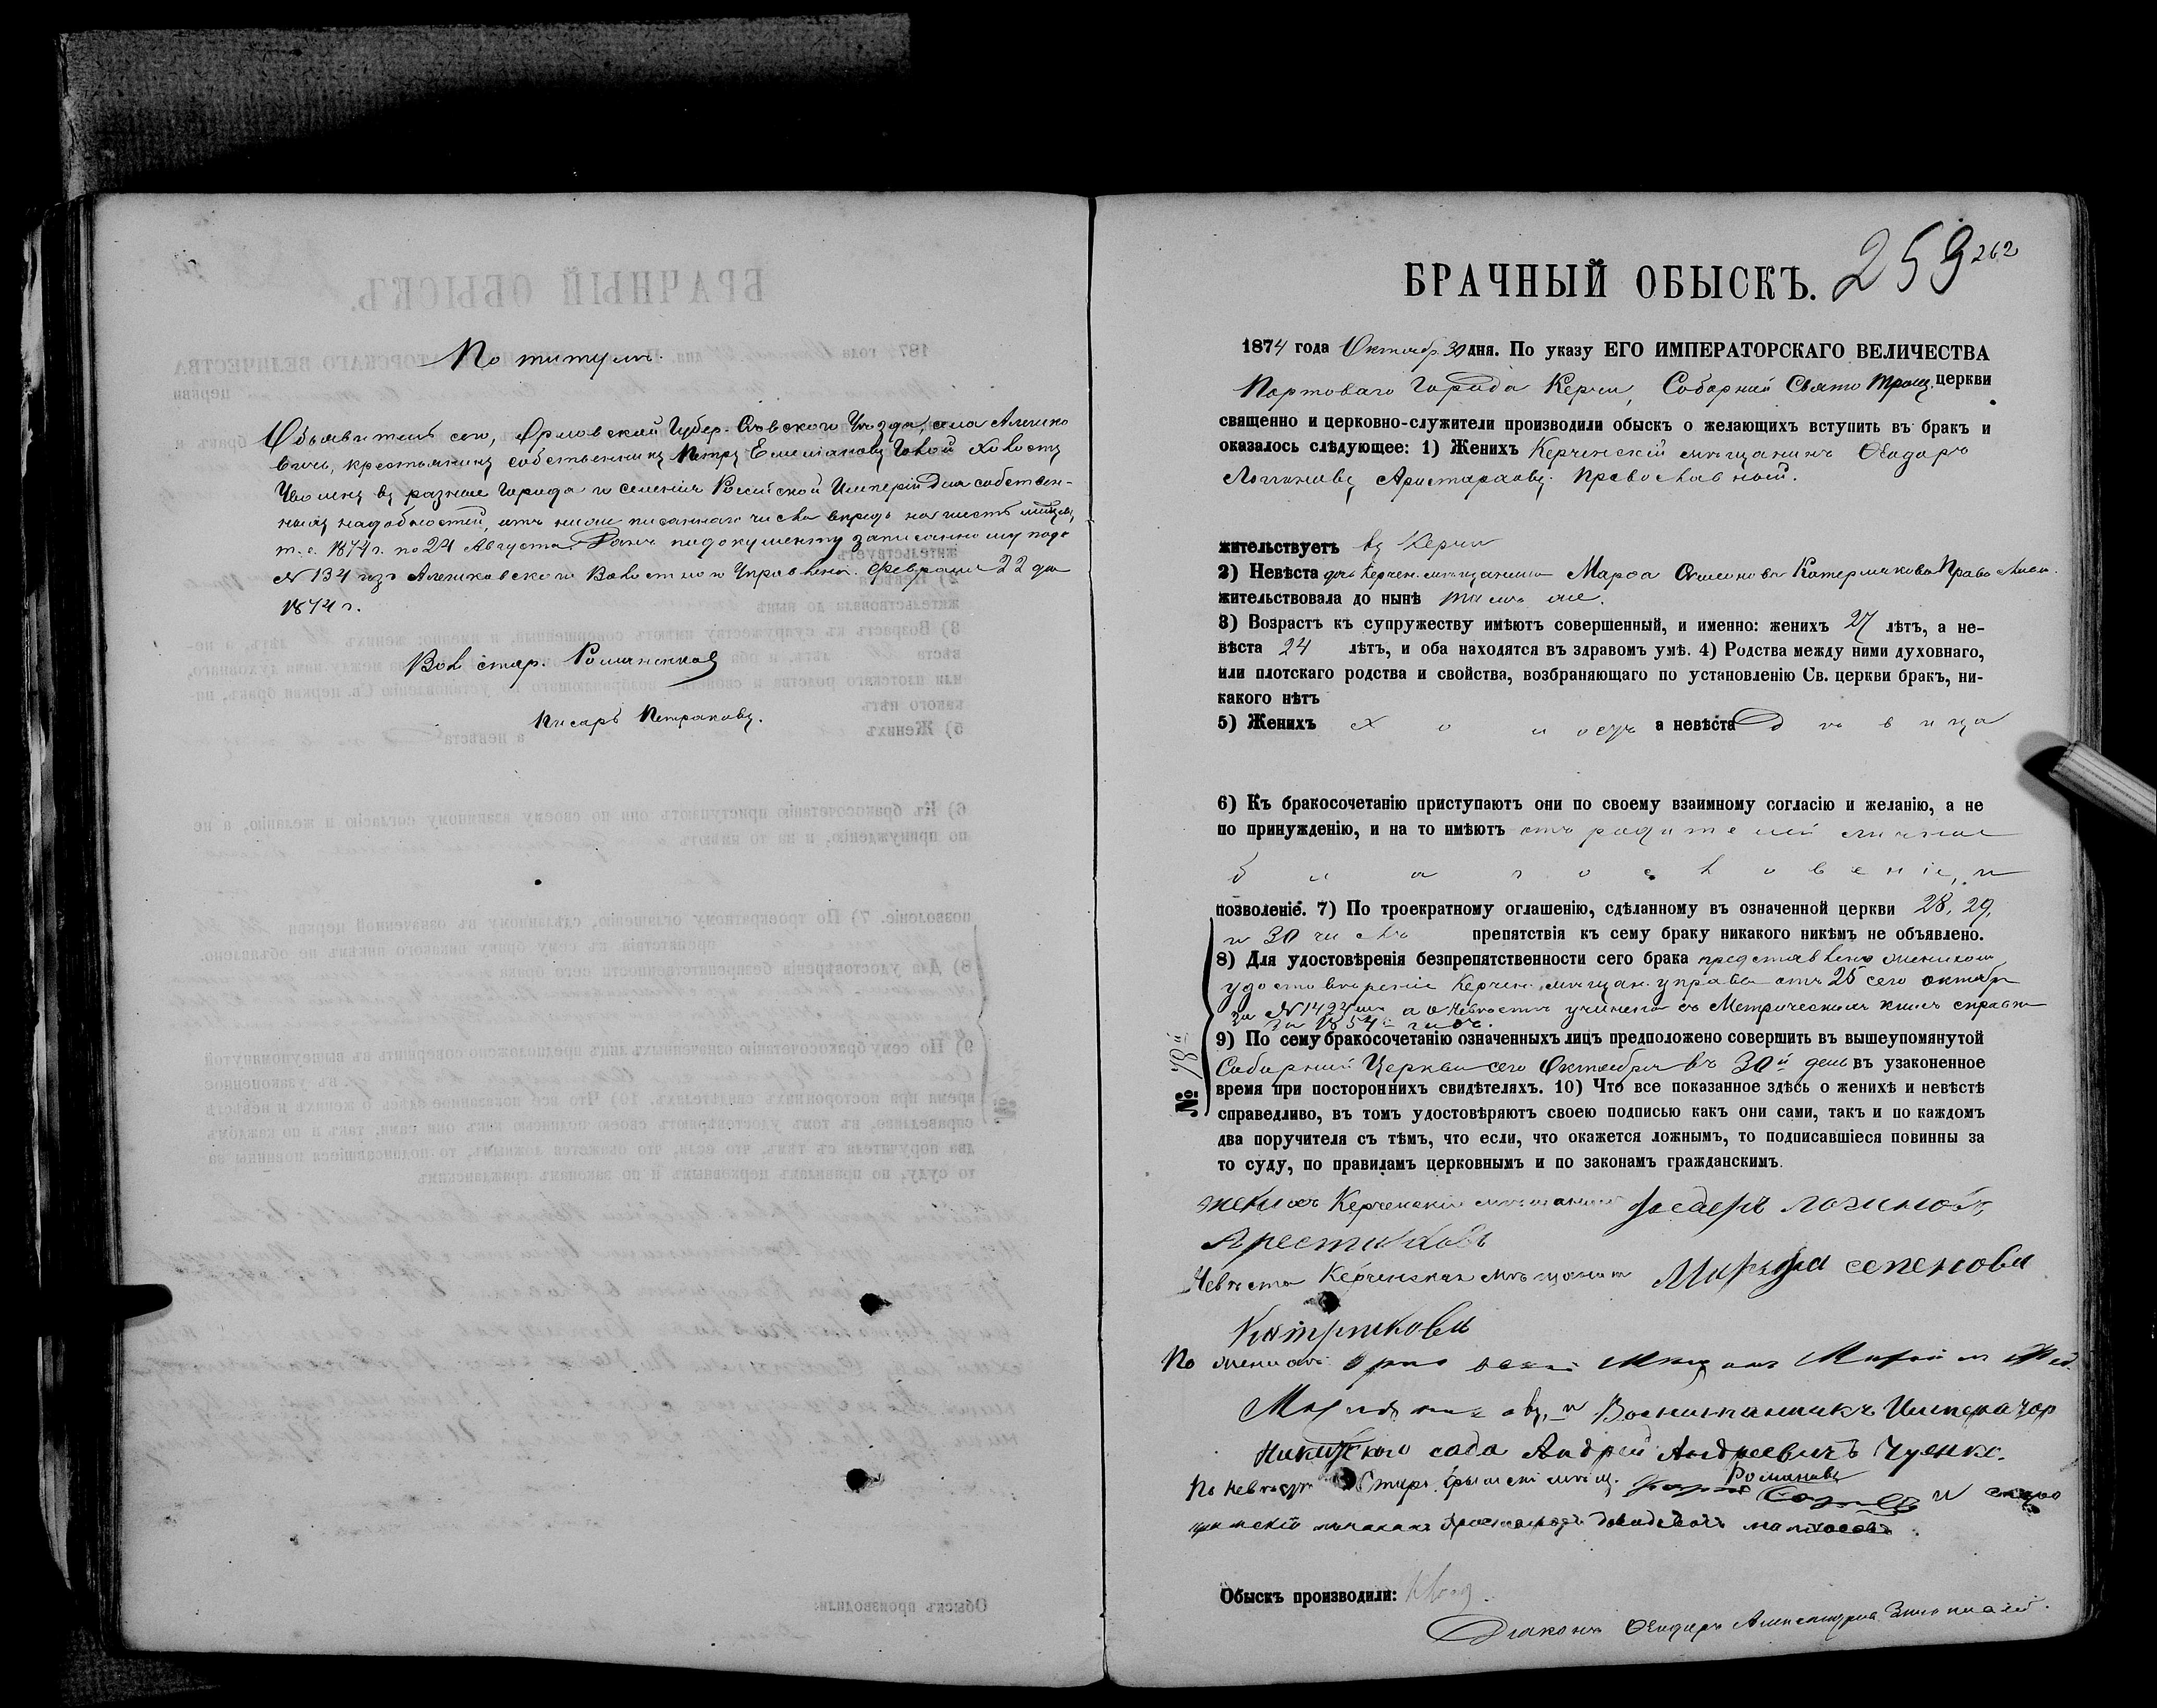 По титулѣ.
Объявитель сего, Орловской Губер. Сѣвского Уѣзда, села Алешко
вичь, крестьянинъ собственникъ Петръ Емелiановъ холостъ
Уволенъ въ разные Города и селенія Россійской Имперіи для собствен-
ныхъ надобностей, отъ ниже писаннаго числа впредь на шесть месяц.,
т. е. 1874 г. по 24 Августа. Данъ по документу записанному подъ
№ 134 изъ Алешковского Волостного Управленія. Февраля 22 дня
1874 г.
Вол. стар. Романенков
Писарь Петраковъ.
БРАЧНЫЙ ОБЫСКЪ.
259 262
1874 года Октябр. 30 дня. По указу ЕГО ИМПЕРАТОРСКАГО ВЕЛИЧЕСТВА
Портоваго Города Керчи, Соборной Свято Троиц. церкви
священно и церковно-служители производили обыскъ о желающихъ вступить въ бракъ и
оказалось слѣдующее: 1) Женихъ Керченскій мѣщанинъ Ѳеодоръ
Логгиновъ Аристарховъ. Православный.
жительствуетъ въ Керчи
2) Невѣста дочь Керчен. мѣщанина Марѳа Семенова Катерликова Православн.
жительствовала до нынѣ тамъ же.
3) Возрастъ къ супружеству имѣютъ совершенный, и именно: женихъ 27 лѣтъ, а не-
вѣста 24 лѣтъ, и оба находятся въ здравомъ умѣ. 4) Родства между ними духовнаго,
или плотскаго родства и свойства, возбраняющаго по установленію Св. церкви бракъ, ни-
какого нѣтъ
5) Женихъ холостъ а невѣста дѣвица
6) Къ бракосочетанію приступаютъ они по своему взаимному согласію и желанію, а не
по принужденію, и на то имѣютъ отъ родителей личное
благословеніе, и
позволеніе. 7) По троекратному оглашенію, сдѣланному въ означенной церкви 28, 29,
и 30 числъ препятствія къ сему браку никакого никѣмъ не объявлено.
8) Для удостовѣренія безпрепятственности сего брака представлено женихом
удостовѣреніе Керчен. мѣщан. управы отъ 25 сего октября
за № 1424 а о невѣстѣ учинена въ Метрическихъ книгъ справка
за 1854 годъ.
9) По сему бракосочетанію означенныхъ лицъ предположено совершить въ вышеупомянутой
Соборной Церкви сего Октября въ 30й день въ узаконенное
№ 78й
время при постороннихъ свидѣтеляхъ. 10) Что все показанное здѣсь о женихѣ и невѣстѣ
справедливо, въ томъ удостовѣряютъ своею подписью какъ они сами, такъ и по каждомъ
два поручителя съ тѣмъ, что если, что окажется ложнымъ, то подписавшіеся повинны за
то суду, по правиламъ церковнымъ и по законамъ гражданскимъ.
женихъ Керченскій мѣщанинъ Федеръ логиновъ
Арестиховъ
Невѣста Керченская мѣщанка Марфа семенова
Катрликова
По женихѣ
и Воспитанникъ Император
Никитского сада Андрей Андреевичъ Чуенко.
По невѣстѣ Старо Крымскі мѣщ. Романовъ и старо
Обыскъ производили:
Діаконъ Ѳеодоръ Александровъ